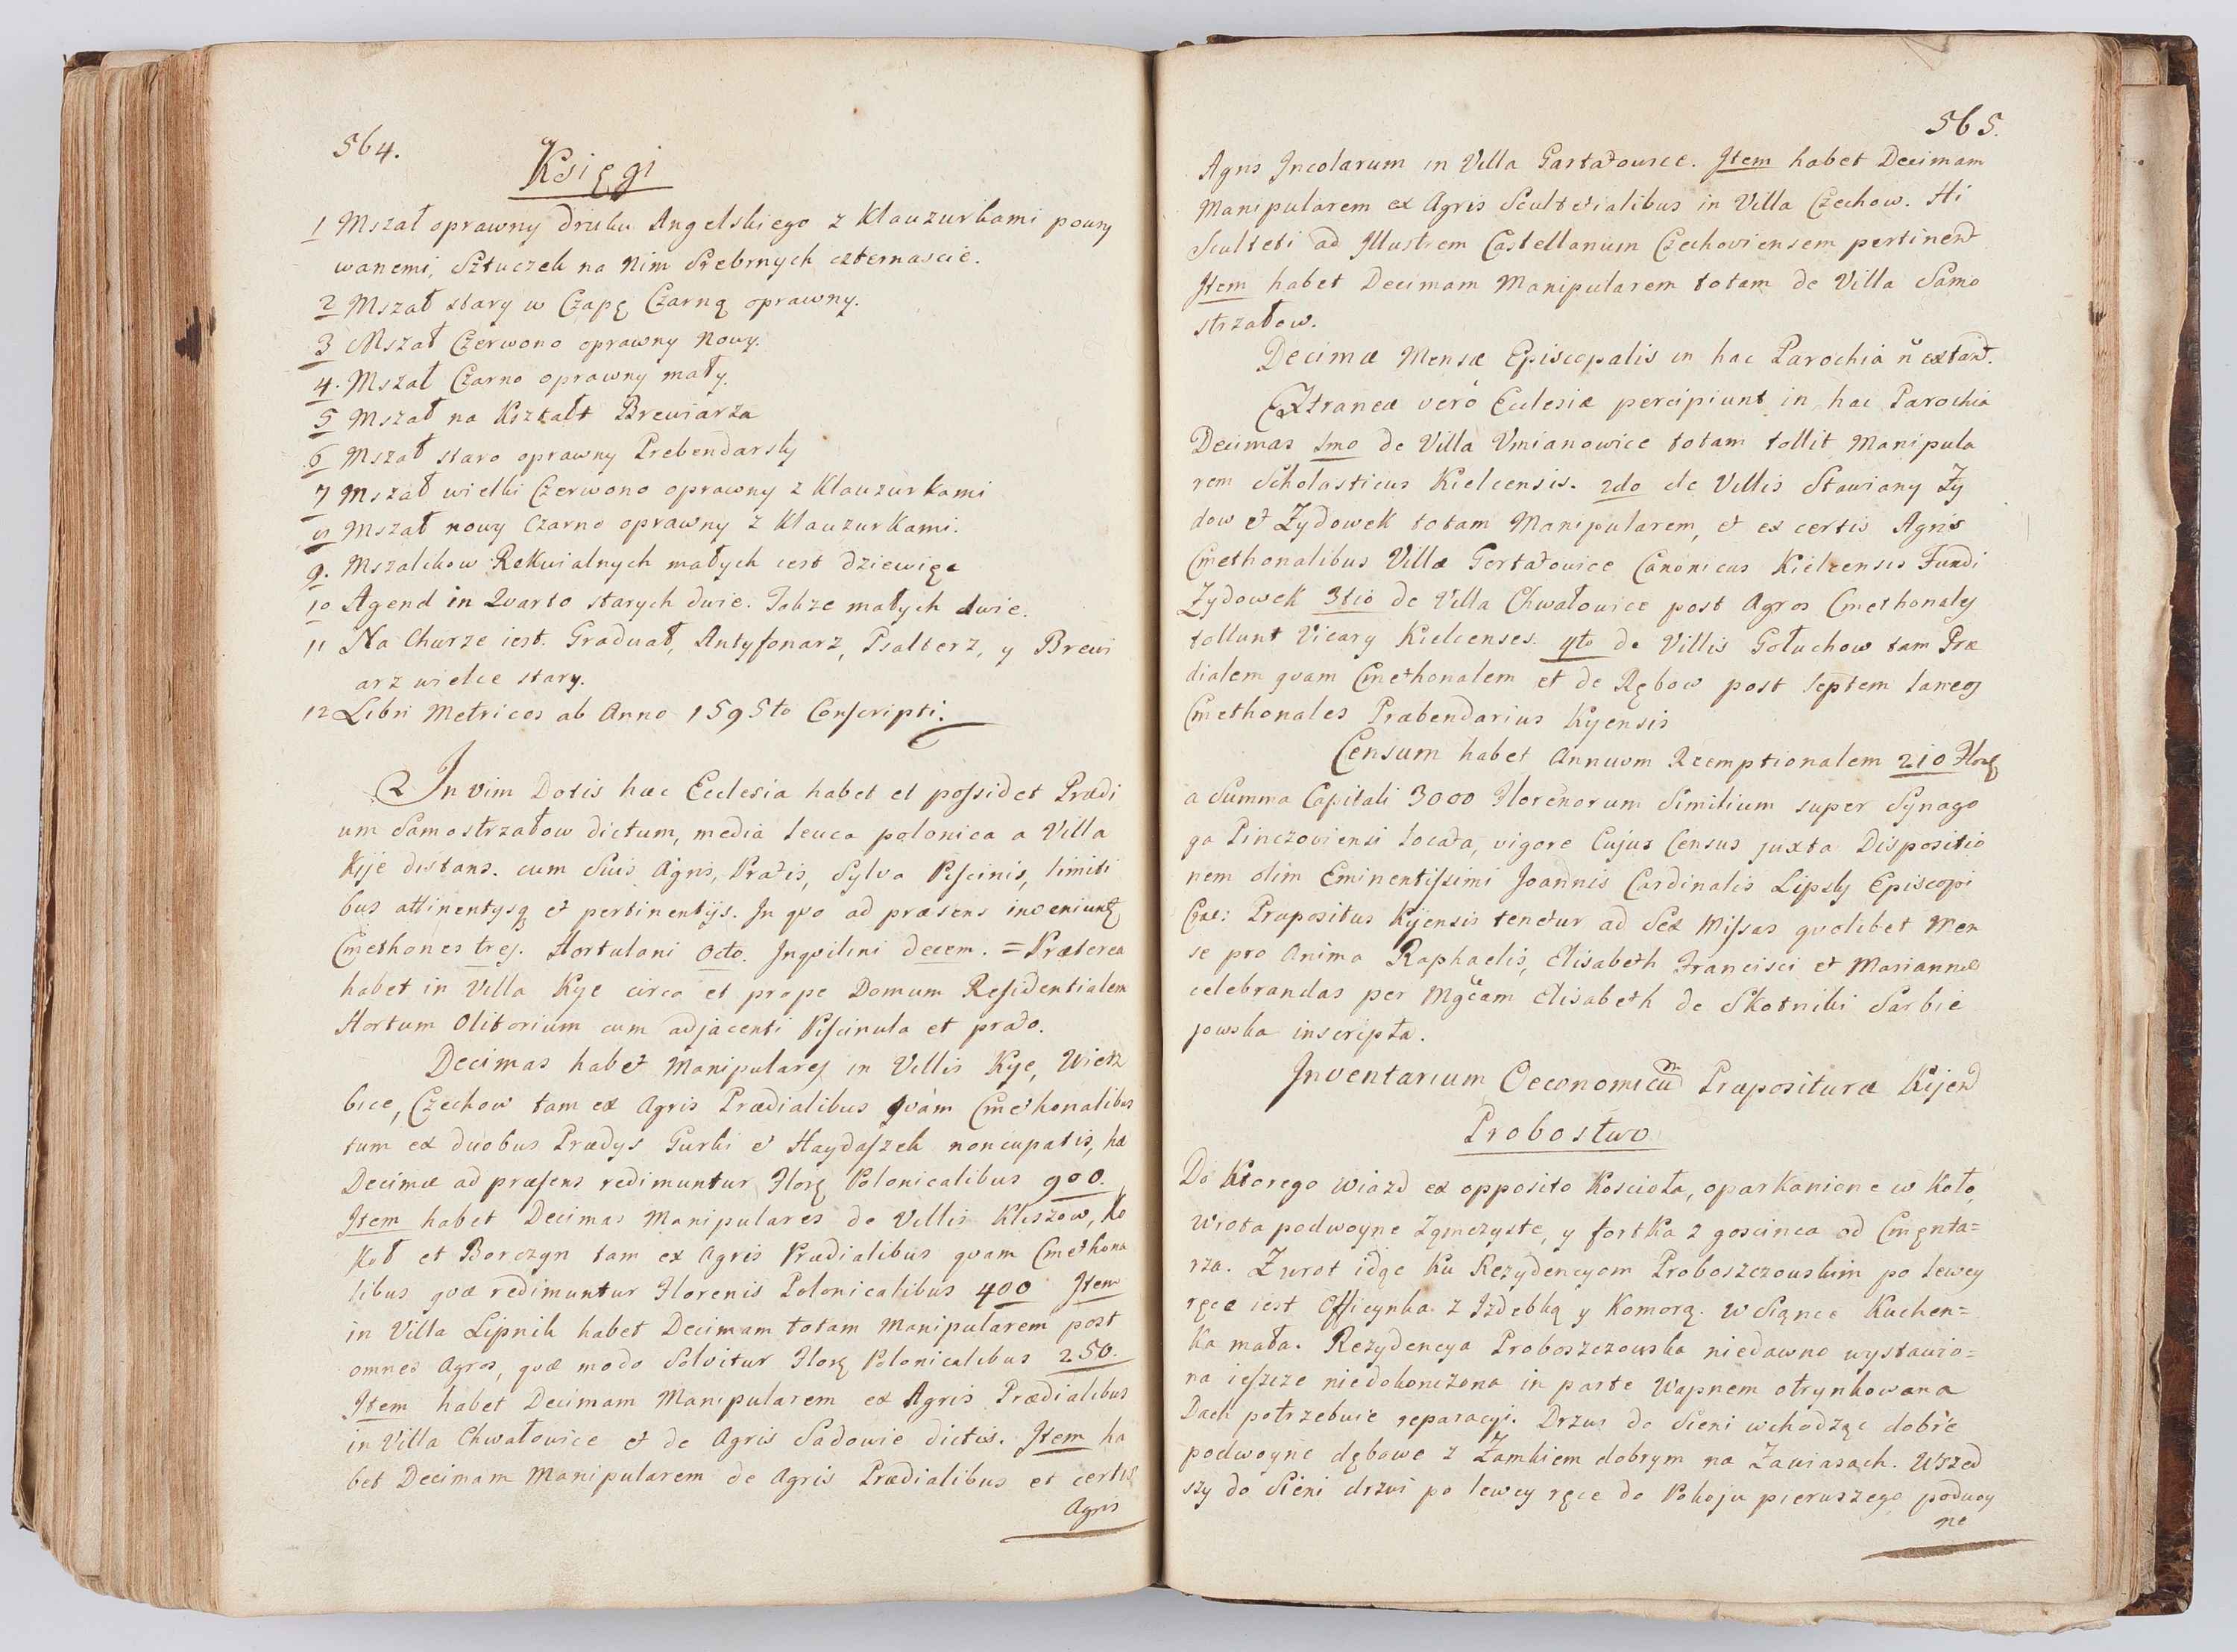 564.
Księgi
1 Mszał oprawny druku Angelskiego z Klauzurkami pozny
wanemi, Sztuczek na nim Srebrnych czternascie.
2 Mszał stary w Czapę Czarną oprawny.
3 Mszał Czerwono oprawny Nowy.
4. Mszał Czarno oprawny mały.
5 Mszał na Kształt Brewiarza
6 Mszał staro oprawny Prebendarsky
7 Mszał wielki Czerwono oprawny z Klauzurkami
8 Mszał nowy Czarno oprawny z Klauzurkami.
9. Mszalikow Rekwialnych małych iest dziewięc
10 Agend in Quarto starych dwie. Takze małych dwie.
11 Na Churze iest. Graduał, Antyfonarz, Psalterz, y Brewi
arz wielce stary.
12 Libri Metricos ab Anno 1595to Conscripti.
In vim Dotis hæc Ecclesia habet et possidet Prædi
um Samostrzałow dictum, media leuca polonica a Villa
Kije distans. cum Suis Agris, Pratis, Sylva Piscinis, limiti
bus attinentysq et pertinentijs. In quo ad præsens inveniuntę
Cmethones tres. Hortulani Octo. Inquilini decem. = Præterea
habet in Villa Kye circa et prope Domum Residentialem
Hortum Olitorium cum adjacenti Piscinula et prato.
Decimas habet Manipulares in Villis Kye, Wierz
bice, Czechow tam ex Agris Prædialibus quàm Cmethonalibus
tum ex duobus Prædys Gurki et Haydaszek noncupatis, hæ
Decimæ ad præsens redimuntur Florę Polonicalibus 900.
Item habet Decimas Manipulares de Villis Kliszow, Ko
kot et Borczyn tam ex Agris Prædialibus quam Cmethona
libus quæ redimuntur Florenis Polonicalibus 400 Item
in Villa Lipnik habet Decimam totam Manipularem post
omnes Agros, quæ modo Solvitur Florę Polonicalibus 250.
Item habet Decimam Manipularem ex Agris Prædialibus
in Villa Chwałowice et de Agris Sadowie dictis. Item ha
bet Decimam Manipularem de Agris Prædialibus et certis
Agris
565.
Agris Incolarum in Villa Gartatowice. Item habet Decimam
Manipularem ex Agris Scultetialibus in Villa Czechow. Hi
Sculteti ad Illustrem Castellanum Czechoviensem pertinent
Item habet Decimam Manipularem totam de Villa Samo
strzałow.
Decimæ Mensæ Episcopalis in hac Parochia ñ extant.
Extraneæ verò Ecclesiæ percipiunt in hac Parochia
Decimas 1mo de Villa Umianowice totam tollit Manipula
rem Scholasticus Kielcensis. 2do de Villis Stawiany Zy
dow et Zydowek totam Manipularem, et ex certis Agris
Cmethonalibus Villæ Gertatowice Canonicus Kielcensis Fundi
Zydowek 3tio de Villa Chwałowice post Agros Cmethonales
tollunt Vicary Kielcenses. 4to de Villis Gołuchow tam Præ
dialem quam Cmethonalem et de Rębow post septem laneos
Cmethonales Præbendarius Kijensis
Censum habet Annuum Reemptionalem 210 Florę
a Summa Capitali 3000 Florenorum Similium super Synago
ga Pinczoviensi locata, vigore Cujus Census juxta Dispositio
nem olim Eminentissimi Joannis Cardinalis Lipsky Episcopi
Crac: Præpositus Kijensis tenetur ad Sex Missas quolibet Men
se pro Anima Raphaelis, Elisabeth Francisci et Mariannæ
celebrandas per Mgcam Elisabeth de Skotniki Sarbie
jowska inscripta.
Inventarium Oeconomicum Præpositura Kijens
Probostwo
Do Ktorego wiazd ex opposito Kosciola, oparkanione w Koło,
Wrota podwoyne Zgmezyste, y fortka z goscinca od Cmęnta=
rza. Zwrot idąc ku Rezydencyom Proboszczowskim po lewey
ręce iest Officynka z Izdebką y Komorą. w Siąnce Kuchen=
ka mała. Rezydencya Proboszczowska niedawno wystawio=
na ieszcze niedokonczona in parte Wapnem otrynkowana
Dach potrzebuie reparacyi. Drzwi do Sieni wchodząc dobre
podwoyne dębowe z Zamkiem dobrym na Zawiasach. Wszed
szy do Sieni drzwi po lewey ręce do Pokoju pierwszego podwoy
ne